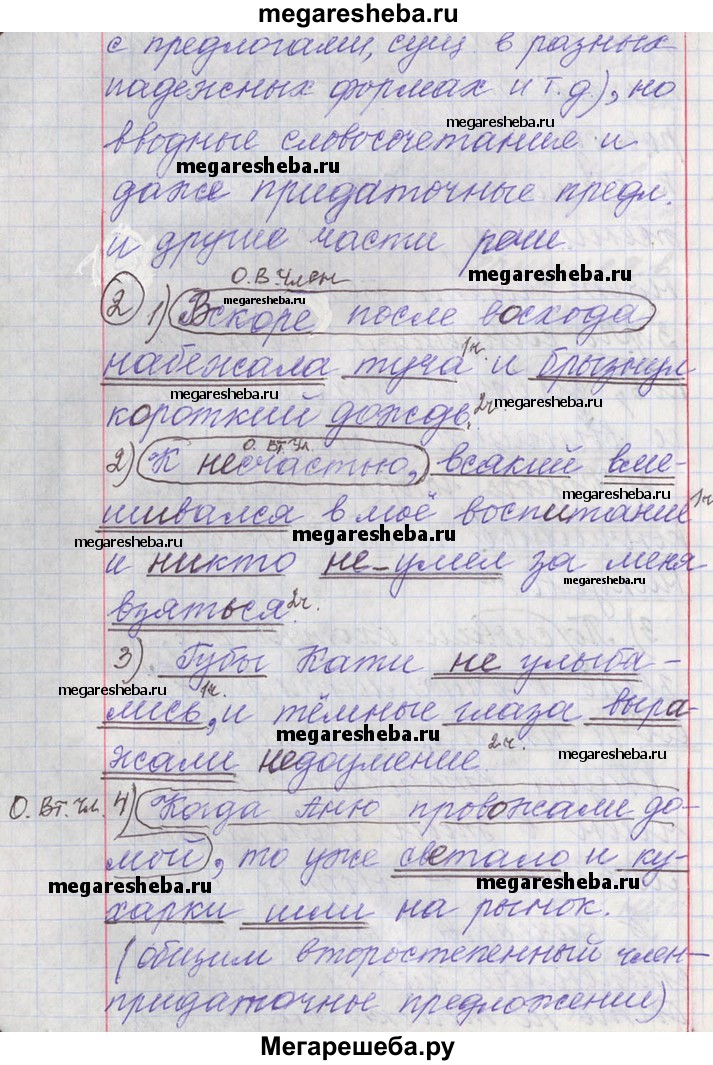 megaresheba.ru
с предлогами, сущ в разных
megaresheba.ru
падежных формах и т.д), но
megaresheba.ru
вводные словосочетания и
megaresheba.ru
даже придаточные предл.
и другие части речи.
megaresheba.ru
О.В.Член
megaresheba.ru
2 1) Вскоре после восхода
набежала туча 1ч. и брызнул
megaresheba.ru
короткий дождь. 2ч.
megaresheba.ru
О. Вт. Чл.
2) К несчастью, всякий вме-
megaresheba.ru
шивался в моё воспитание 1ч
megaresheba.ru
megaresheba.ru
и никто не умел за меня
megaresheba.ru
взяться 2ч.
3) Губы Кати не улыба-
megaresheba.ru
лись 1ч., и тёмные глаза выра-
megaresheba.ru
жали недоумение 2ч.
megaresheba.ru
О. Вт. Чл. 4) Когда Аню провожали до-
мой, то уже светало и ку-
megaresheba.ru
megaresheba.ru
харки шли на рынок.
(общим второстепенный член-
придаточные предложение)
Мегарешеба.ру